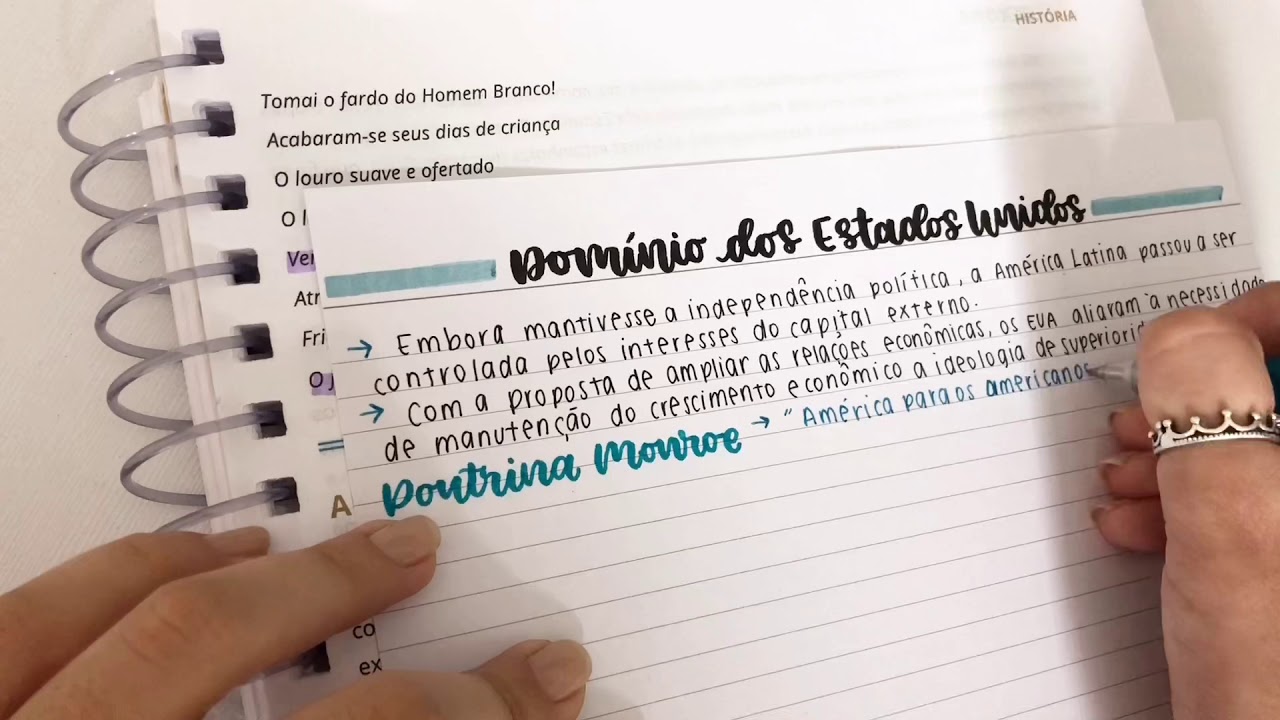 HISTÓRIA
Tomai o fardo do Homem Branco!
Acabaram-se seus dias de criança
O louro suave e ofertado
O l
Ver
Atr
Fri
O j
A
co
ex
Domínio dos Estados Unidos
→ Embora mantivesse a independência política, a América Latina passou a ser
controlada pelos interesses do capital externo.
→ Com a proposta de ampliar as relações econômicas, os EUA aliaram à necessidade
de manutenção do crescimento econômico a ideologia de
Doutrina Monroe → "América para os americanos